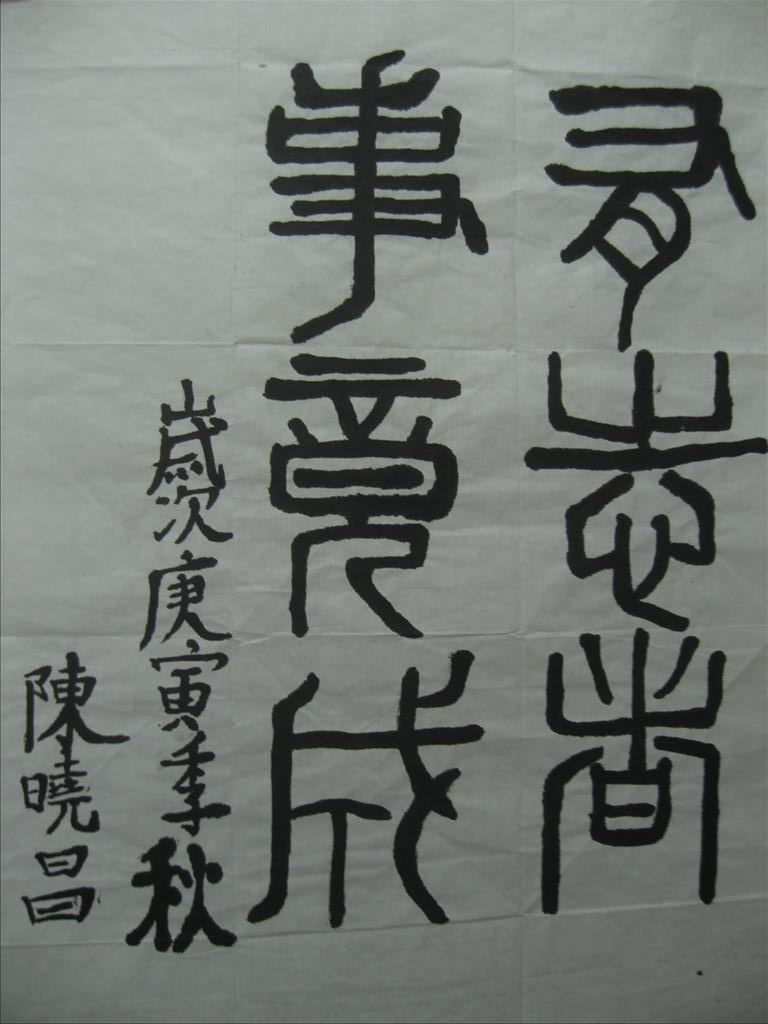 有志者
事竟成
歲次庚寅季秋
陳曉昌